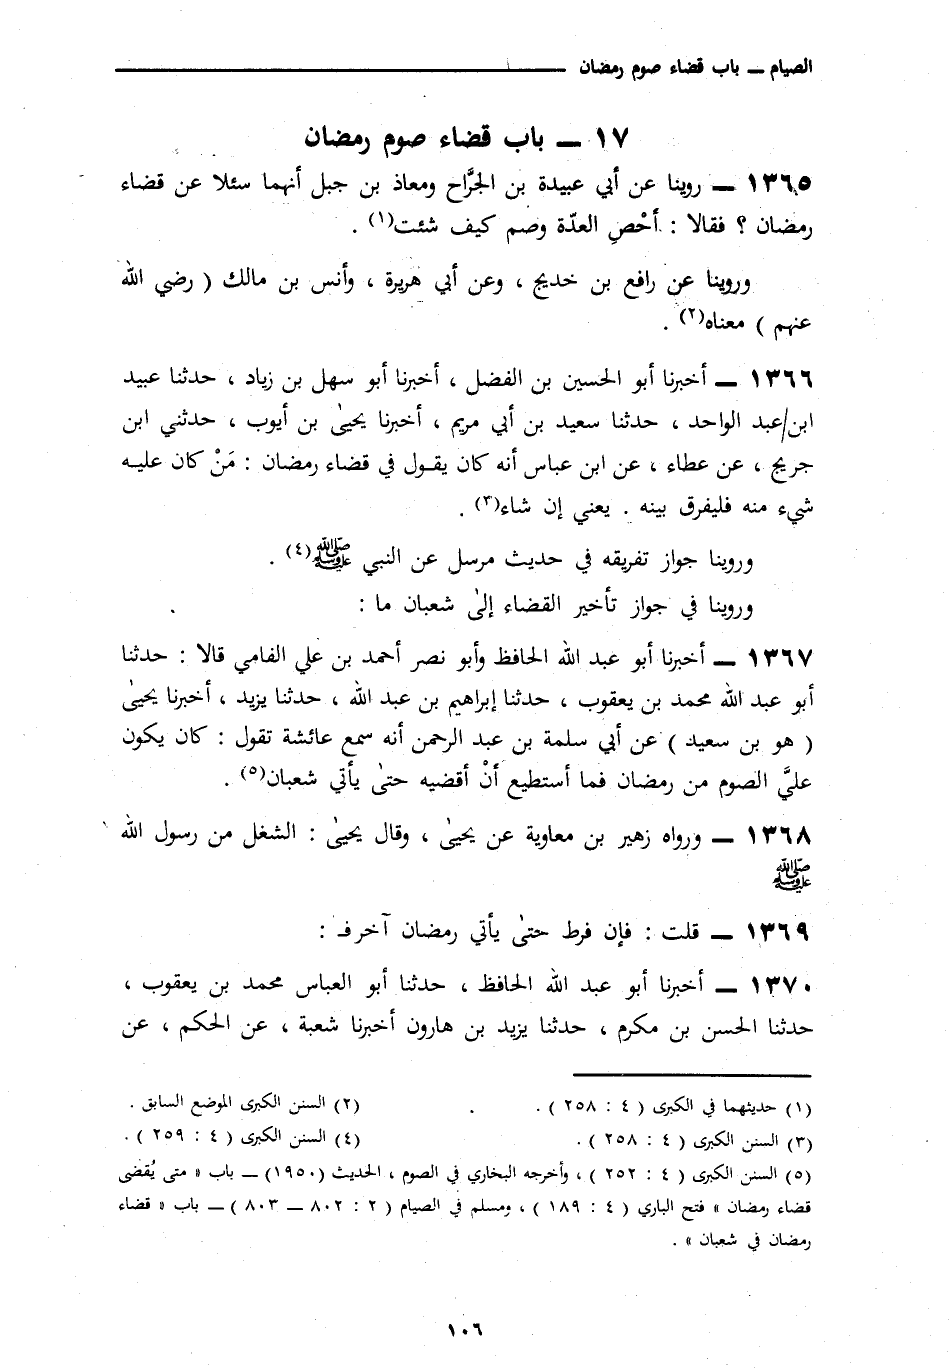 الصيام — باب قضاء صوم رمضان
١٧ — باب قضاء صوم رمضان
١٣٦٥ — روينا عن أبي عبيدة بن الجرَّاح ومعاذ بن جبل أنهما سئلا عن قضاء
رمضان ؟ فقالا : أحْصِ العدّة وصم كيف شئت(١) .
وروينا عن رافع بن خديج ، وعن أبي هريرة ، وأنس بن مالك ( رضي الله
عنهم ) معناه(٢) .
١٣٦٦ — أخبرنا أبو الحسين بن الفضل ، أخبرنا أبو سهل بن زياد ، حدثنا عبيد
ابن عبد الواحد ، حدثنا سعيد بن أبي مريم ، أخبرنا يحيىٰ بن أيوب ، حدثني ابن
جريج ، عن عطاء ، عن ابن عباس أنه كان يقـول في قضاء رمضان : مَنْ كان عليـه
شيء منه فليفرق بينه . يعني إن شاء(٣) .
وروينا جواز تفريقه في حديث مرسل عن النبي ﷺ(٤) .
وروينا في جواز تأخير القضاء إلىٰ شعبان ما :
١٣٦٧ — أخبرنا أبو عبد الله الحافظ وأبو نصر أحمد بن علي الفامي قالا : حدثنا
أبو عبد الله محمد بن يعقوب ، حدثنا إبراهيم بن عبد الله ، حدثنا يزيد ، أخبرنا يحيىٰ
( هو بن سعيد ) عن أبي سلمة بن عبد الرحمن أنه سمع عائشة تقول : كان يكون
عليَّ الصوم من رمضان فما أستطيع أنْ أقضيه حتىٰ يأتي شعبان(٥) .
١٣٦٨ — ورواه زهير بن معاوية عن يحيىٰ ، وقال يحيىٰ : الشغل من رسول الله
ﷺ
١٣٦٩ — قلت : فإن فرط حتىٰ يأتي رمضان آخر فـ :
١٣٧٠ — أخبرنا أبو عبد الله الحافظ ، حدثنا أبو العباس محمد بن يعقوب ،
حدثنا الحسن بن مكرم ، حدثنا يزيد بن هارون أخبرنا شعبة ، عن الحكم ، عن
(١) حديثهما في الكبرى ( ٤ : ٢٥٨ ) . (٢) السنن الكبرى الموضع السابق .
(٣) السنن الكبرى ( ٤ : ٢٥٨ ) . (٤) السنن الكبرى ( ٤ : ٢٥٩ ) .
(٥) السنن الكبرى ( ٤ : ٢٥٢ ) ، وأخرجه البخاري في الصوم ، الحديث (١٩٥٠) — باب « متى يُقضى
قضاء رمضان » فتح الباري ( ٤ : ١٨٩ ) ، ومسلم في الصيام ( ٢ : ٨٠٢ — ٨٠٣ ) — باب « قضاء
رمضان في شعبان » .
١٠٦